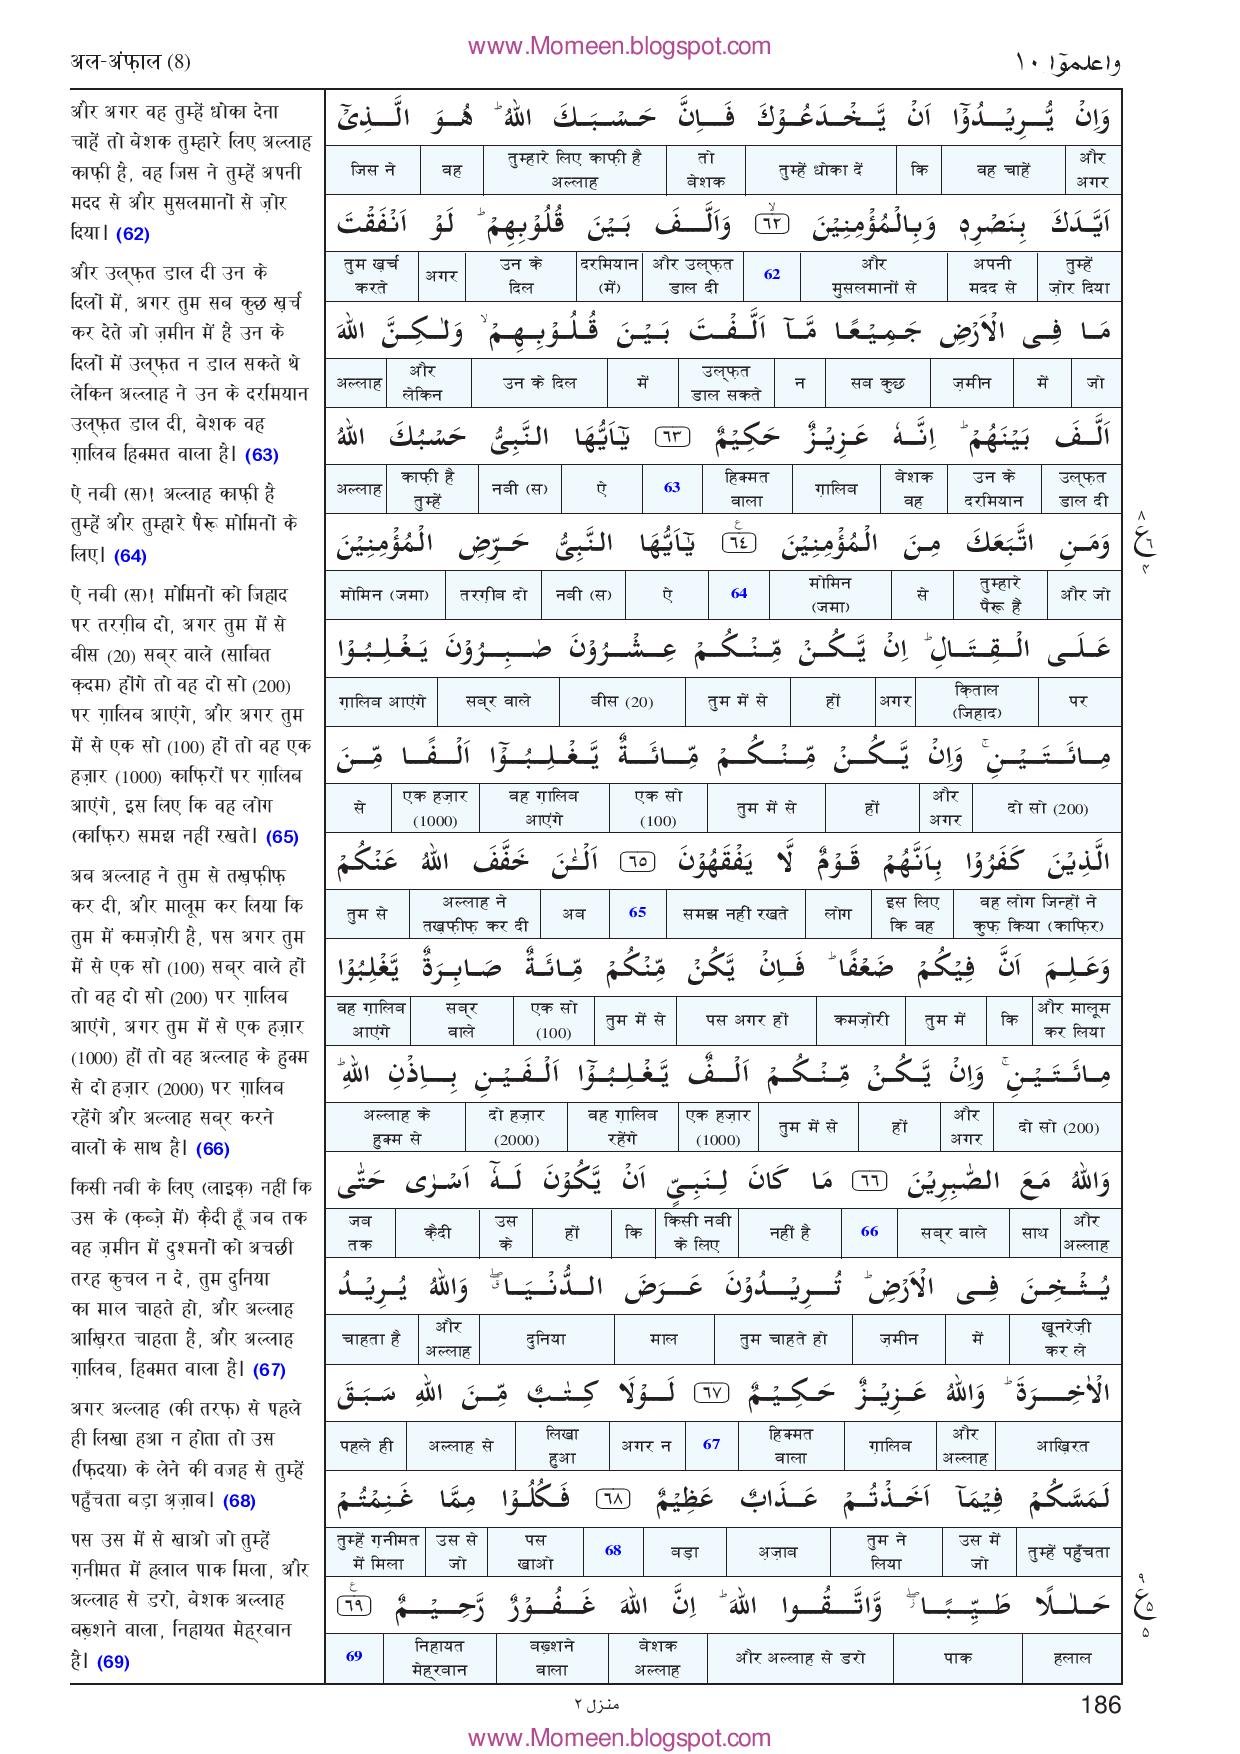 www.Momeen.blogspot.com
अल-अंफ़ाल (8)
واعلموٓا ١٠
और अगर वह तुम्हें धोका देना
चाहें तो बेशक तुम्हारे लिए अल्लाह
काफ़ी है, वह जिस ने तुम्हें अपनी
मदद से और मुसलमानों से ज़ोर
दिया। (62)
और उल्फ़त डाल दी उन के
दिलों में, अगर तुम सब कुछ ख़र्च
कर देते जो ज़मीन में है उन के
दिलों में उल्फ़त न डाल सकते थे
लेकिन अल्लाह ने उन के दरमियान
उल्फ़त डाल दी, बेशक वह
ग़ालिब हिक्मत वाला है। (63)
ऐ नबी (स)! अल्लाह काफ़ी है
तुम्हें और तुम्हारे पैरू मोमिनों के
लिए। (64)
ऐ नबी (स)! मोमिनों को जिहाद
पर तरग़ीब दो, अगर तुम में से
बीस (20) सब्र वाले (साबित
क़दम) होंगे तो वह दो सो (200)
पर ग़ालिब आएंगे, और अगर तुम
में से एक सो (100) हों तो वह एक
हज़ार (1000) काफ़िरों पर ग़ालिब
आएंगे, इस लिए कि वह लोग
(काफ़िर) समझ नहीं रखते। (65)
अब अल्लाह ने तुम से तख़फ़ीफ़
कर दी, और मालूम कर लिया कि
तुम में कमज़ोरी है, पस अगर तुम
में से एक सो (100) सब्र वाले हों
तो वह दो सो (200) पर ग़ालिब
आएंगे, अगर तुम में से एक हज़ार
(1000) हों तो वह अल्लाह के हुक्म
से दो हज़ार (2000) पर ग़ालिब
रहेंगे और अल्लाह सब्र करने
वालों के साथ है। (66)
किसी नबी के लिए (लाइक़) नहीं कि
उस के (क़ब्ज़े में) कै़दी हूँ जब तक
वह ज़मीन में दुश्मनों को अचछी
तरह कुचल न दे, तुम दुनिया
का माल चाहते हो, और अल्लाह
आख़िरत चाहता है, और अल्लाह
ग़ालिब, हिक्मत वाला है। (67)
अगर अल्लाह (की तरफ़) से पहले
ही लिखा हआ न होता तो उस
(फ़िदया) के लेने की वजह से तुम्हें
पहुँचता बड़ा अ़ज़ाब। (68)
पस उस में से खाओ जो तुम्हें
ग़नीमत में हलाल पाक मिला, और
अल्लाह से डरो, बेशक अल्लाह
बख़्शने वाला, निहायत मेह्रबान
है। (69)
وَاِنْ يُّرِيْدُوْٓا اَنْ يَّخْدَعُوْكَ فَاِنَّ حَسْبَكَ اللّٰهُ ؕ هُوَ الَّذِيْٓ
और अगर वह चाहें कि तुम्हें धोका दें तो बेशक तुम्हारे लिए काफ़ी है अल्लाह वह जिस ने
اَيَّدَكَ بِنَصْرِهٖ وَبِالْمُؤْمِنِيْنَ ۙ﴿٦٢﴾ وَاَلَّفَ بَيْنَ قُلُوْبِهِمْ ؕ لَوْ اَنْفَقْتَ
तुम्हें ज़ोर दिया अपनी मदद से और मुसलमानों से 62 और उल्फ़त डाल दी दरमियान (में) उन के दिल अगर तुम ख़र्च करते
مَا فِى الْاَرْضِ جَمِيْعًا مَّآ اَلَّفْتَ بَيْنَ قُلُوْبِهِمْ ۙ وَلٰكِنَّ اللّٰهَ
जो में ज़मीन सब कुछ न उल्फ़त डाल सकते में उन के दिल और लेकिन अल्लाह
اَلَّفَ بَيْنَهُمْ ؕ اِنَّهٗ عَزِيْزٌ حَكِيْمٌ ﴿٦٣﴾ يٰٓاَيُّهَا النَّبِىُّ حَسْبُكَ اللّٰهُ
उल्फ़त डाल दी उन के दरमियान बेशक वह ग़ालिब हिक्मत वाला 63 ऐ नबी (स) काफ़ी है तुम्हें अल्लाह
وَمَنِ اتَّبَعَكَ مِنَ الْمُؤْمِنِيْنَ ﴿٦٤﴾ يٰٓاَيُّهَا النَّبِىُّ حَرِّضِ الْمُؤْمِنِيْنَ
٨ ع ٦ ٤
और जो तुम्हारे पैरू हैं से मोमिन (जमा) 64 ऐ नबी (स) तरग़ीब दो मोमिन (जमा)
عَلَى الْقِتَالِ ؕ اِنْ يَّكُنْ مِّنْكُمْ عِشْرُوْنَ صٰبِرُوْنَ يَغْلِبُوْا
पर क़िताल (जिहाद) अगर हों तुम में से बीस (20) सब्र वाले ग़ालिब आएंगे
مِائَتَيْنِ ۚ وَاِنْ يَّكُنْ مِّنْكُمْ مِّائَةٌ يَّغْلِبُوْٓا اَلْفًا مِّنَ
दो सो (200) और अगर हों तुम में से एक सो (100) वह ग़ालिब आएंगे एक हज़ार (1000) से
الَّذِيْنَ كَفَرُوْا بِاَنَّهُمْ قَوْمٌ لَّا يَفْقَهُوْنَ ﴿٦٥﴾ اَلْـٰٔنَ خَفَّفَ اللّٰهُ عَنْكُمْ
वह लोग जिन्हों ने कुफ़ किया (काफ़िर) इस लिए कि वह लोग समझ नहीं रखते 65 अब अल्लाह ने तख़फ़ीफ़ कर दी तुम से
وَعَلِمَ اَنَّ فِيْكُمْ ضَعْفًا ؕ فَاِنْ يَّكُنْ مِّنْكُمْ مِّائَةٌ صَابِرَةٌ يَّغْلِبُوْا
और मालूम कर लिया कि तुम में कमज़ोरी पस अगर हों तुम में से एक सो (100) सब्र वाले वह ग़ालिब आएंगे
مِائَتَيْنِ ۚ وَاِنْ يَّكُنْ مِّنْكُمْ اَلْفٌ يَّغْلِبُوْٓا اَلْفَيْنِ بِاِذْنِ اللّٰهِ ؕ
दो सो (200) और अगर हों तुम में से एक हज़ार (1000) वह ग़ालिब रहेंगे दो हज़ार (2000) अल्लाह के हुक्म से
وَاللّٰهُ مَعَ الصّٰبِرِيْنَ ﴿٦٦﴾ مَا كَانَ لِنَبِىٍّ اَنْ يَّكُوْنَ لَهٗٓ اَسْرٰى حَتّٰى
और अल्लाह साथ सब्र वाले 66 नहीं है किसी नबी के लिए कि हों उस के कै़दी जब तक
يُثْخِنَ فِى الْاَرْضِ ؕ تُرِيْدُوْنَ عَرَضَ الدُّنْيَا ۖۗ وَاللّٰهُ يُرِيْدُ
खूनरेज़ी कर ले में ज़मीन तुम चाहते हो माल दुनिया और अल्लाह चाहता है
الْاٰخِرَةَ ؕ وَاللّٰهُ عَزِيْزٌ حَكِيْمٌ ﴿٦٧﴾ لَوْلَا كِتٰبٌ مِّنَ اللّٰهِ سَبَقَ
आख़िरत और अल्लाह ग़ालिब हिक्मत वाला 67 अगर न लिखा हुआ अल्लाह से पहले ही
لَمَسَّكُمْ فِيْمَآ اَخَذْتُمْ عَذَابٌ عَظِيْمٌ ﴿٦٨﴾ فَكُلُوْا مِمَّا غَنِمْتُمْ
तुम्हें पहुँचता उस में जो तुम ने लिया अ़ज़ाब बड़ा 68 पस खाओ उस से जो तुम्हें ग़नीमत में मिला
حَلٰلًا طَيِّبًا ۖ وَّاتَّقُوا اللّٰهَ ؕ اِنَّ اللّٰهَ غَفُوْرٌ رَّحِيْمٌ ﴿٦٩﴾
٩ ع ٥ ٥
हलाल पाक और अल्लाह से डरो बेशक अल्लाह बख़्शने वाला निहायत मेह्रबान 69
منزل ٢
186
www.Momeen.blogspot.com